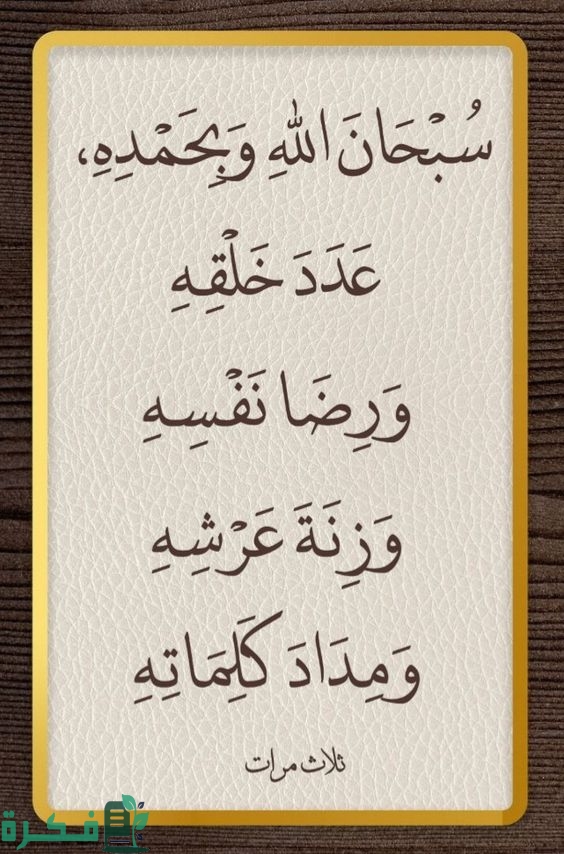 سُبْحَانَ اللهِ وَبِحَمْدِهِ،
عَدَدَ خَلْقِهِ
وَرِضَا نَفْسِهِ
وَزِنَةَ عَرْشِهِ
وَمِدَادَ كَلِمَاتِهِ
ثلاث مرات
فكرة